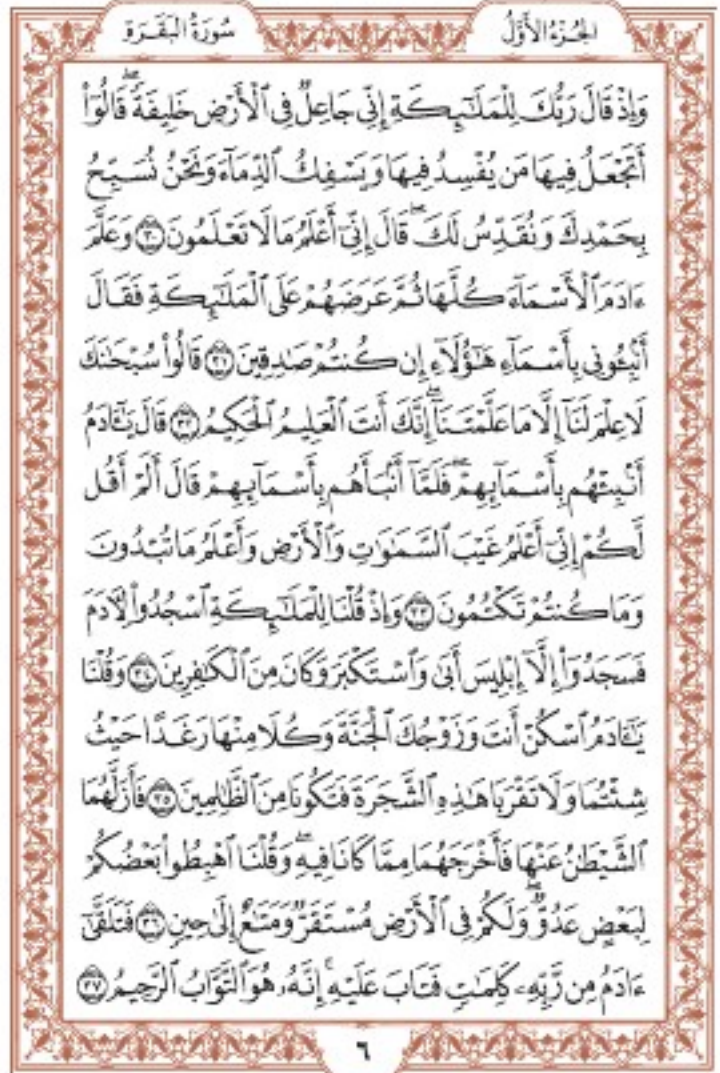 سُورَةُ البَقَرَةِ
الجُزْءُ الأَوَّلُ
وَإِذْ قَالَ رَبُّكَ لِلْمَلَٰٓئِكَةِ إِنِّي جَاعِلٌ فِي ٱلْأَرْضِ خَلِيفَةًۖ قَالُوٓاْ
أَتَجْعَلُ فِيهَا مَن يُفْسِدُ فِيهَا وَيَسْفِكُ ٱلدِّمَآءَ وَنَحْنُ نُسَبِّحُ
بِحَمْدِكَ وَنُقَدِّسُ لَكَۖ قَالَ إِنِّيٓ أَعْلَمُ مَا لَا تَعْلَمُونَ ٣٠ وَعَلَّمَ
ءَادَمَ ٱلْأَسْمَآءَ كُلَّهَا ثُمَّ عَرَضَهُمْ عَلَى ٱلْمَلَٰٓئِكَةِ فَقَالَ
أَنۢبِـُٔونِي بِأَسْمَآءِ هَٰٓؤُلَآءِ إِن كُنتُمْ صَٰدِقِينَ ٣١ قَالُواْ سُبْحَٰنَكَ
لَا عِلْمَ لَنَآ إِلَّا مَا عَلَّمْتَنَآۖ إِنَّكَ أَنتَ ٱلْعَلِيمُ ٱلْحَكِيمُ ٣٢ قَالَ يَٰٓـَٔادَمُ
أَنۢبِئْهُم بِأَسْمَآئِهِمْۖ فَلَمَّآ أَنۢبَأَهُم بِأَسْمَآئِهِمْ قَالَ أَلَمْ أَقُل
لَّكُمْ إِنِّيٓ أَعْلَمُ غَيْبَ ٱلسَّمَٰوَٰتِ وَٱلْأَرْضِ وَأَعْلَمُ مَا تُبْدُونَ
وَمَا كُنتُمْ تَكْتُمُونَ ٣٣ وَإِذْ قُلْنَا لِلْمَلَٰٓئِكَةِ ٱسْجُدُواْ لِأٓدَمَ
فَسَجَدُوٓاْ إِلَّآ إِبْلِيسَ أَبَىٰ وَٱسْتَكْبَرَ وَكَانَ مِنَ ٱلْكَٰفِرِينَ ٣٤ وَقُلْنَا
يَٰٓـَٔادَمُ ٱسْكُنْ أَنتَ وَزَوْجُكَ ٱلْجَنَّةَ وَكُلَا مِنْهَا رَغَدًا حَيْثُ
شِئْتُمَا وَلَا تَقْرَبَا هَٰذِهِ ٱلشَّجَرَةَ فَتَكُونَا مِنَ ٱلظَّٰلِمِينَ ٣٥ فَأَزَلَّهُمَا
ٱلشَّيْطَٰنُ عَنْهَا فَأَخْرَجَهُمَا مِمَّا كَانَا فِيهِۖ وَقُلْنَا ٱهْبِطُواْ بَعْضُكُمْ
لِبَعْضٍ عَدُوٌّۖ وَلَكُمْ فِي ٱلْأَرْضِ مُسْتَقَرٌّ وَمَتَٰعٌ إِلَىٰ حِينٍ ٣٦ فَتَلَقَّىٰٓ
ءَادَمُ مِن رَّبِّهِۦ كَلِمَٰتٍ فَتَابَ عَلَيْهِۚ إِنَّهُۥ هُوَ ٱلتَّوَّابُ ٱلرَّحِيمُ ٣٧
٦